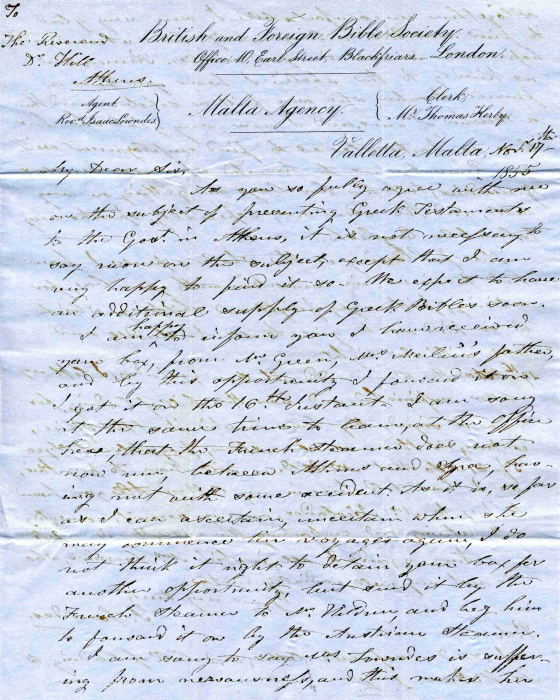 To
The Reverend
Dr. Hill
Athens.
British and Foreign Bible Society.
Office, 10, Earl Street, Blackfriars, London.
Agent,
Revd. Isaac Lowndes
Malta Agency.
Clerk,
Mr. Thomas Kerby.
Valletta, Malta, Novr. 17th
1855
My Dear Sir,
As you so fully agree with me
on the subject of presenting Greek Testaments
to the Govt. in Athens, it is not necessary to
say more on the subject, except that I am
very happy to find it so. We expect to have
an additional supply of Greek Bibles soon.
I am happy to inform you I have received
your box, from Mr. Green, Mrs. father
and by this opportunity I forward it on
I got it on the 16th Instant. I am sorry
at the same time to learn, at the office
here, that the French Steamer does not
now run, between Athens and Syra, hav-
ing met with some accident. As it is, so far
as I can ascertain, uncertain when she
may commence her voyages again, I do
not think it right to detain your box for
another opportunity, but send it by the
French Steamer to Mr. and beg him
to forward it on by the Austrian Steamer.
I am sorry to say Mrs. Lowndes is suffer-
ing from nervousness, and this makes her